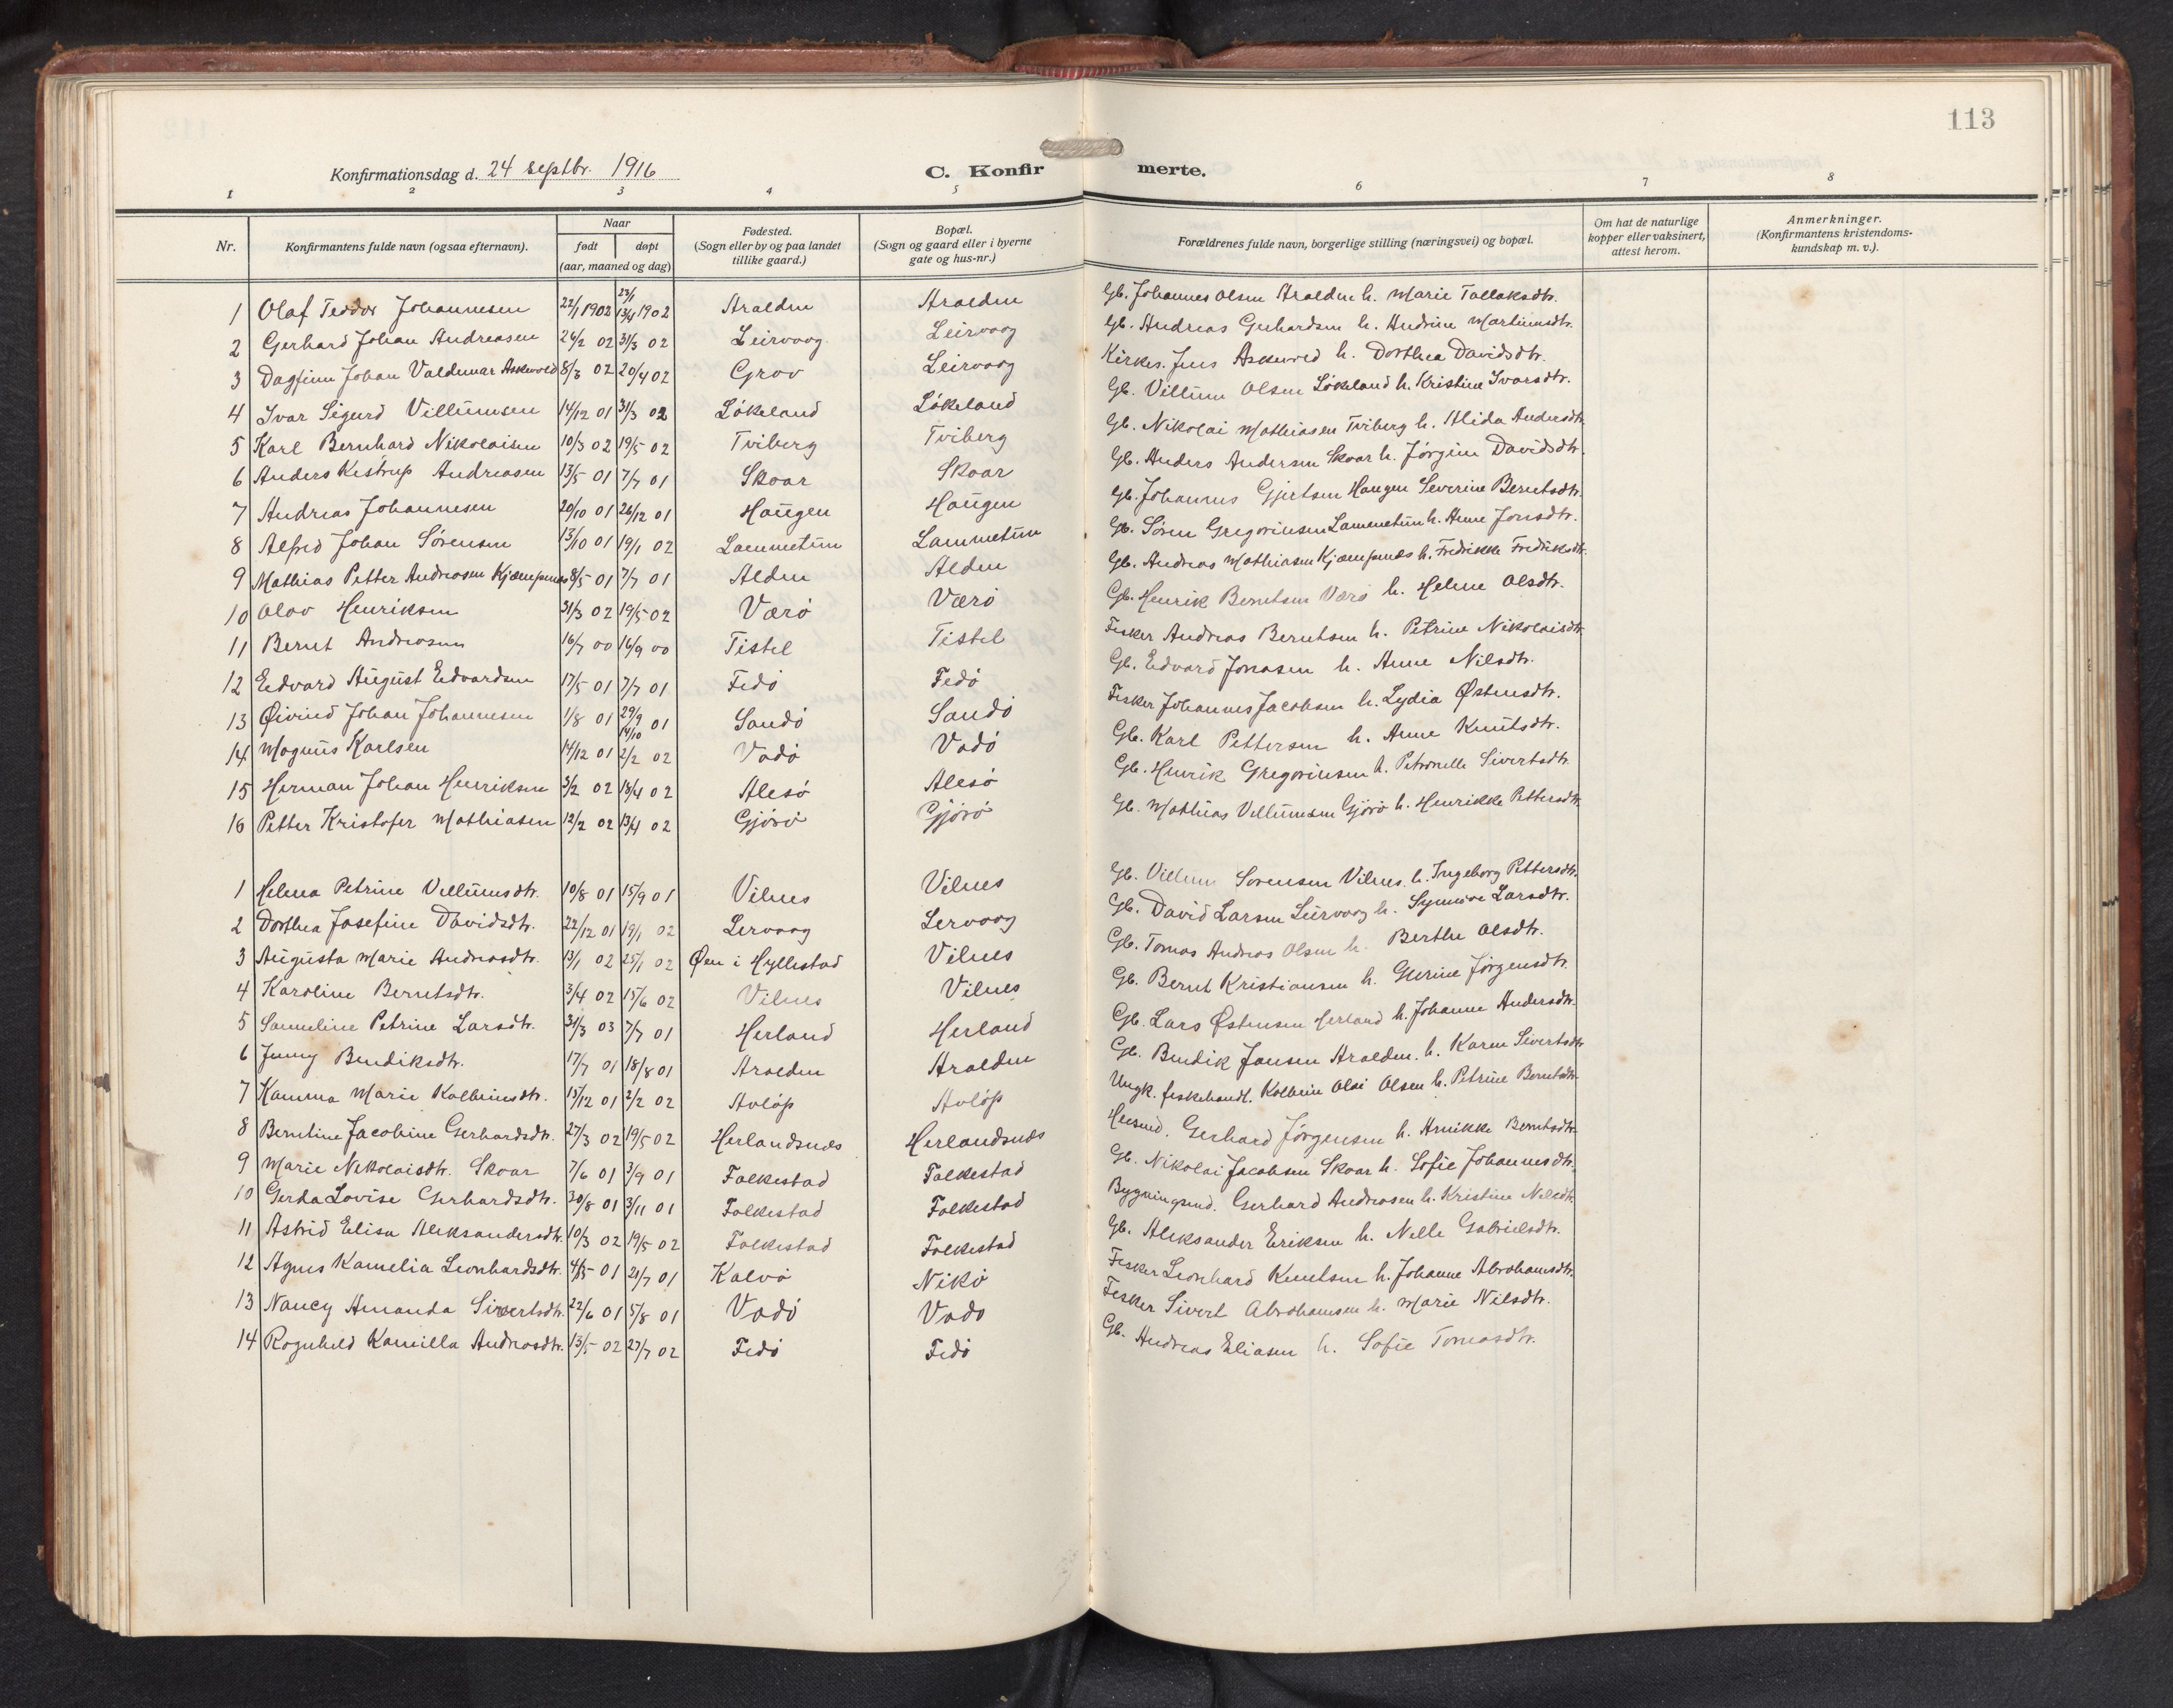 113
Konfirmationsdag d. 24 septbr. 1916
C. Konfirmerte.
1 2 3 4 5 6 7 8
Nr. Konfirmantens fulde navn (ogsaa efternavn). Naar født døpt (aar, maaned og dag) Fødested. (Sogn eller by og paa landet tillike gaard.) Bopæl. (Sogn og gaard eller i byerne gate og hus-nr.) Forældrenes fulde navn, borgerlige stilling (næringsvei) og bopæl. Om hat de naturlige kopper eller vaksinert, attest herom. Anmerkninger. (Konfirmantens kristendomskundskap m. v.).
1 Olaf Teodor Johannesen 22/1 1902 23/1 13/4 1902 Aralden Aralden Gb. Johannes Olsen Aralden h. Marie Tollaksdtr.
2 Gerhard Johan Andreasen 26/2 02 31/3 02 Leirvaag Leirvaag Gb. Andreas Gerhardsen h. Andrine Martinusdtr.
3 Dagfinn Johan Valdemar Askevold 8/3 02 20/4 02 Grov Leirvaag Kirkes. Jens Askevold h. Dorthea Davidsdtr.
4 Ivar Sigurd Villumsen 14/12 01 31/3 02 Løkeland Løkeland Gb. Villum Olsen Løkeland h. Kristine Ivarsdtr.
5 Karl Bernhard Nikolaisen 10/3 02 19/5 02 Tviberg Tviberg Gb. Nikolai Mathiasen Tviberg h. Alida Andersdtr.
6 Anders Kistrup Andreasen 13/5 01 7/7 01 Skoar Skoar Gb. Anders Andersen Skoar h. Jørgine Davidsdtr.
7 Andreas Johannesen 20/10 01 26/12 01 Haugen Haugen Gb. Johannes Gjertsen Haugen Severine Berntsdtr.
8 Alfred Johan Sørensen 13/10 01 19/1 02 Lammetun Lammetun Gb. Søren Gregoriusen Lammetun h. Anne Jonsdtr.
9 Mathias Petter Andreasen Kjæmpenes 8/5 01 7/7 01 Alden Alden Gb. Andreas Mathiasen Kjæmpenes h. Fredrikke Fredriksdtr.
10 Olav Henriksen 31/3 02 19/5 02 Værø Værø Gb. Henrik Berntsen Værø h. Helene Olsdtr.
11 Bernt Andreasen 16/7 00 16/9 00 Tistel Tistel Fisker Andreas Berntsen h. Petrine Nikolaisdtr.
12 Edvard August Edvardsen 17/5 01 7/7 01 Fedø Fedø Gb. Edvard Jonasen h. Anne Nilsdtr.
13 Øivind Johan Johannesen 1/8 01 29/9 14/10 01 Sandø Sandø Fisker Johannes Jacobsen h. Lydia Østensdtr.
14 Magnus Karlsen 14/12 01 2/2 02 Vadø Vadø Gb. Karl Pettersen h. Anne Knutsdtr.
15 Herman Johan Henriksen 3/2 02 18/4 02 Alesø Alesø Gb. Henrik Gregoriusen h. Petronelle Sivertsdtr.
16 Petter Kristofer Mathiasen 12/2 02 13/4 02 Gjørø Gjørø Gb. Mathias Villumsen Gjørø h. Henrikke Pettersdtr.
1 Helena Petrine Villumsdtr. 10/8 01 15/9 01 Vilnes Vilnes Gb. Villum Sørensen Vilnes h. Ingeborg Pettersdtr.
2 Dorthea Josefine Davidsdtr. 22/12 01 19/1 02 Lervaag Lervaag Gb. David Larsen Leirvaag h. Synnøve Larsdtr.
3 Augusta Marie Andreasdtr. 13/1 02 25/1 02 Øen i Hyllestad Vilnes Gb. Tomas Andreas Olsen h. Berthe Olsdtr.
4 Karoline Berntsdtr. 3/4 02 15/6 02 Vilnes Vilnes Gb. Bernt Kristiansen h. Gurine Jørgensdtr.
5 Samueline Petrine Larsdtr. 31/3 03 7/7 01 Herland Herland Gb. Lars Østensen Herland h. Johanne Andersdtr.
6 Jenny Bendiksdtr. 17/7 01 18/8 01 Aralden Aralden Gb. Bendik Jansen Aralden. h. Karen Sivertsdtr.
7 Kamma Marie Kolbeinsdtr. 15/12 01 2/2 02 Avløp Avløp Ungk. fiskehandl. Kolbein Olai Olsen h. Petrine Berntsdtr.
8 Berntine Jacobine Gerhardsdtr. 27/3 02 19/5 02 Herlandsnæs Herlandsnæs Husmd. Gerhard Jørgensen h. Annikke Berntsdtr.
9 Marie Nikolaisdtr. Skoar 7/6 01 3/9 01 Falkestad Falkestad Gb. Nikolai Jacobsen Skoar h. Sofie Johannesdtr.
10 Gerda Lovise Gerhardsdtr. 30/8 01 3/11 01 Falkestad Falkestad Bygningsmd. Gerhard Andreasen h. Kristine Nilsdtr.
11 Astrid Elisa Aleksandersdtr. 10/3 02 19/5 02 Falkestad Falkestad Gb. Aleksander Eriksen h. Nelle Gabrielsdtr.
12 Agnes Kamelia Leonhardsdtr. 4/5 01 21/7 01 Kalvø Nikø Fisker Leonhard Knutsen h. Johanne Abrahamsdtr.
13 Nancy Amanda Sivertsdtr. 22/6 01 5/8 01 Vadø Vadø Fisker Sivert Abrahamsen h. Marie Nilsdtr.
14 Ragnhild Kamilla Andreasdtr. 13/5 02 27/7 02 Fedø Fedø Gb. Andreas Eliasen h. Sofie Tomasdtr.